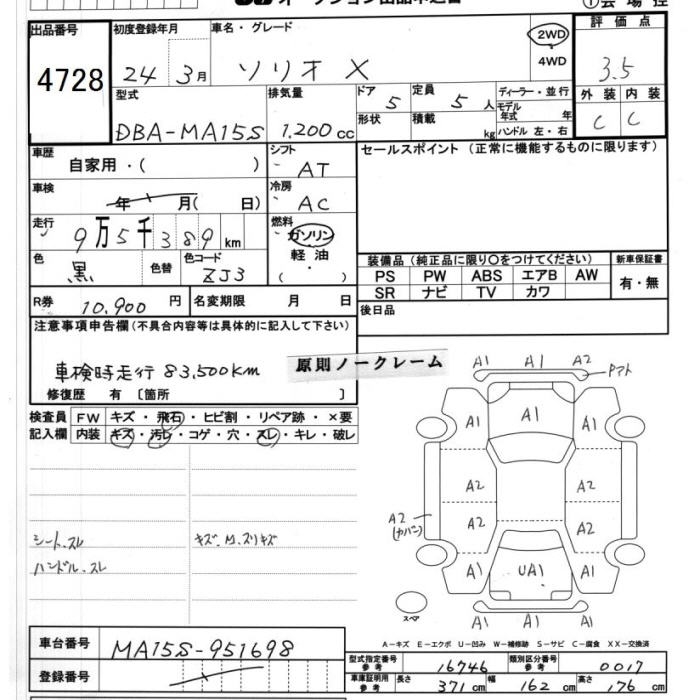 オークション出品申込書
①会場控
出品番号
4728
初度登録年月
24年 3月
車名・グレード
ソリオ X
2WD
4WD
評価点
3.5
外装 内装
C C
型式
DBA-MA15S
排気量
1.200cc
ドア 5
定員 5人
形状
積載 kg
ディーラー・並行
モデル年式 年
ハンドル 左・右
車歴
自家用・( )
シフト
AT
セールスポイント(正常に機能するものに限ります)
車検
年 月( 日)
冷房
AC
走行
9万5千389km
燃料
ガソリン
軽油
・
( )
色
黒
色替
色コード
ZJ3
装備品(純正品に限り○をつけてください)
新車保証書
PS PW ABS エアB AW
SR ナビ TV カワ
有・無
R券
10.900円
名変期限 月 日
後日品
注意事項申告欄(不具合内容等は具体的に記入して下さい)
車検時走行 83,500km
原則ノークレーム
修復歴 有 [箇所 ]
検査員
記入欄
FW キズ・飛石・ヒビ割・リペア跡・×要
内装 キズ・汚レ・コゲ・穴・スレ・キレ・破レ
シート.スレ
ハンドル.スレ
キズ.M.スリキズ
A1 A1 A2
A1 A1 A1
A2 A2
A2
(カバン)
A2 A2
A1 UA1 A1
A1 A1 A1
スペア
A-キズ E-エクボ U-凹み W-補修跡 S-サビ C-腐食 XX-交換済
車台番号
MA15S-951698
登録番号
型式指定番号
参考
16746
類別区分番号
参考
0017
車庫証明用
参考
長さ 371cm
幅 162cm
高さ 176cm